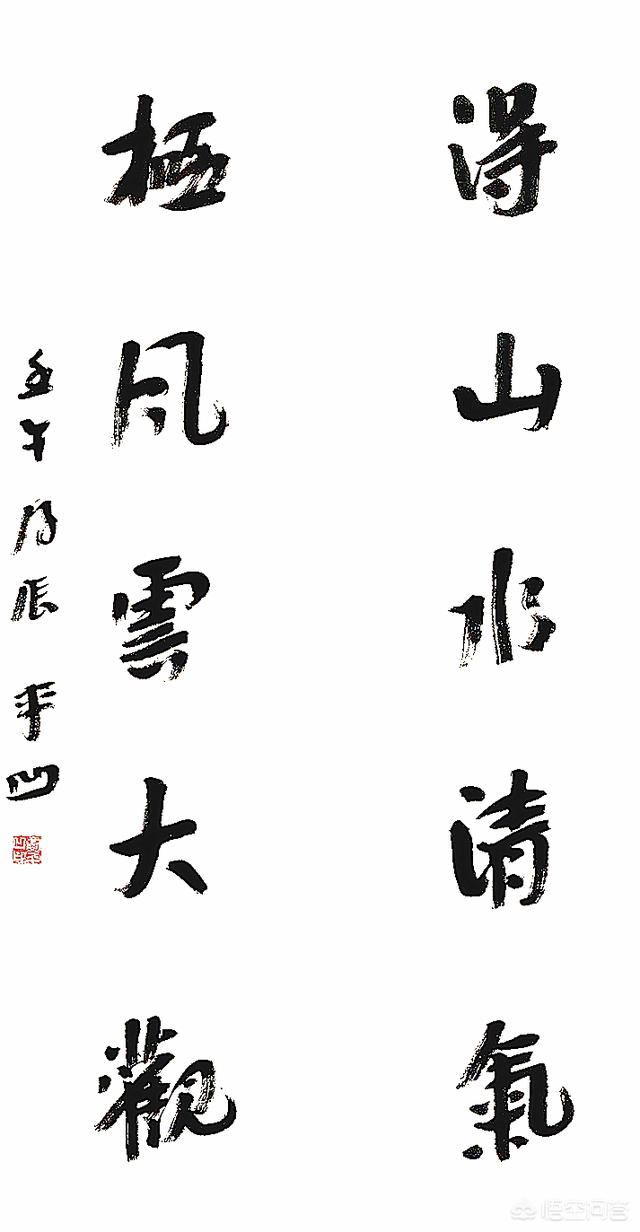 得山水清氣
極風雲大觀
壬午 平凹
悟空问答